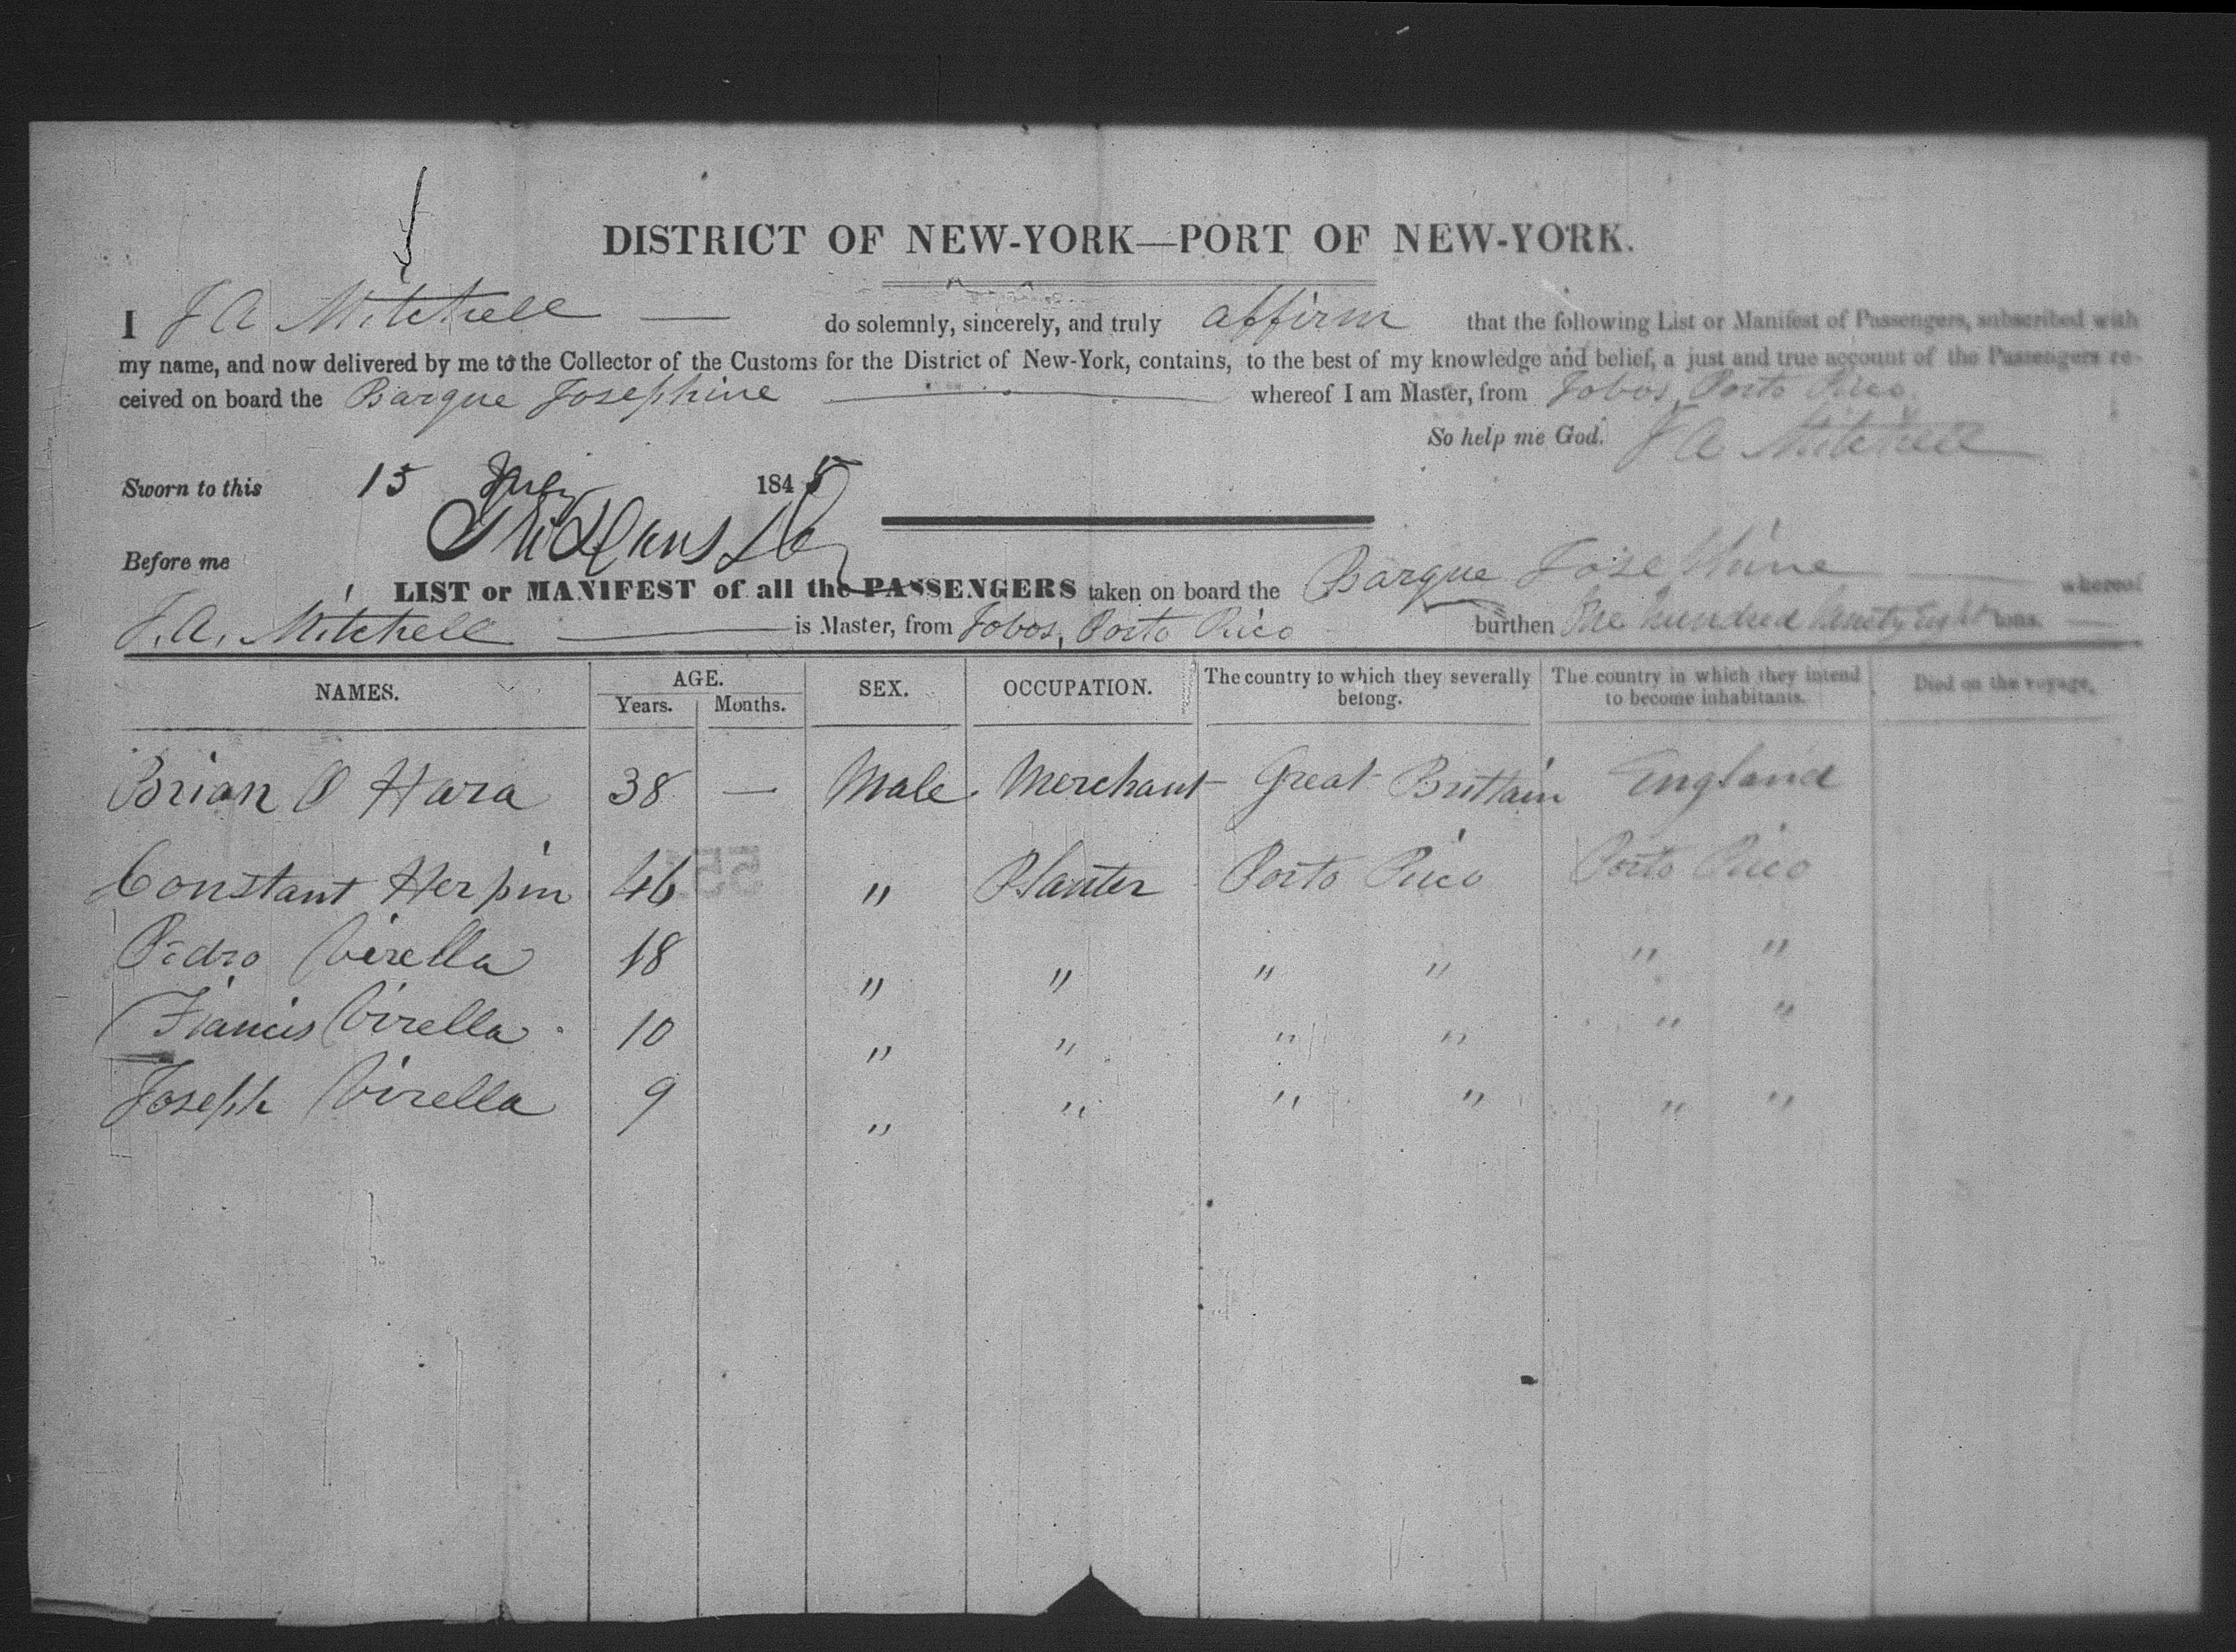 DISTRICT OF NEW-YORK—PORT OF NEW-YORK.
I J A Mitchell — do solemnly, sincerely, and truly affirm that the following List or Manifest of Passengers, subscribed with
my name, and now delivered by me to the Collector of the Customs for the District of New-York, contains, to the best of my knowledge and belief, a just and true account of the Passengers re-
ceived on board the Barque Josephine — whereof I am Master, from Jobos, Porto Rico
So help me God. J A Mitchell
Sworn to this 15 July 1848
Before me
LIST or MANIFEST of all the PASSENGERS taken on board the Barque Josephine — whereof
J. A. Mitchell — is Master, from Jobos, Porto Rico burthen One hundred Ninety Eight tons.
NAMES. AGE. SEX. OCCUPATION. The country to which they severally belong. The country in which they intend to become inhabitants. Died on the voyage.
Years. Months.
Brian O Hara 38 — Male. Merchant Great Brittain England
Constant Herpin 46 " Planter Porto Rico Porto Rico
Pedro Virella 18 " " " " " "
Francis Virella 10 " " " " " "
Joseph Virella 9 " " " " " "